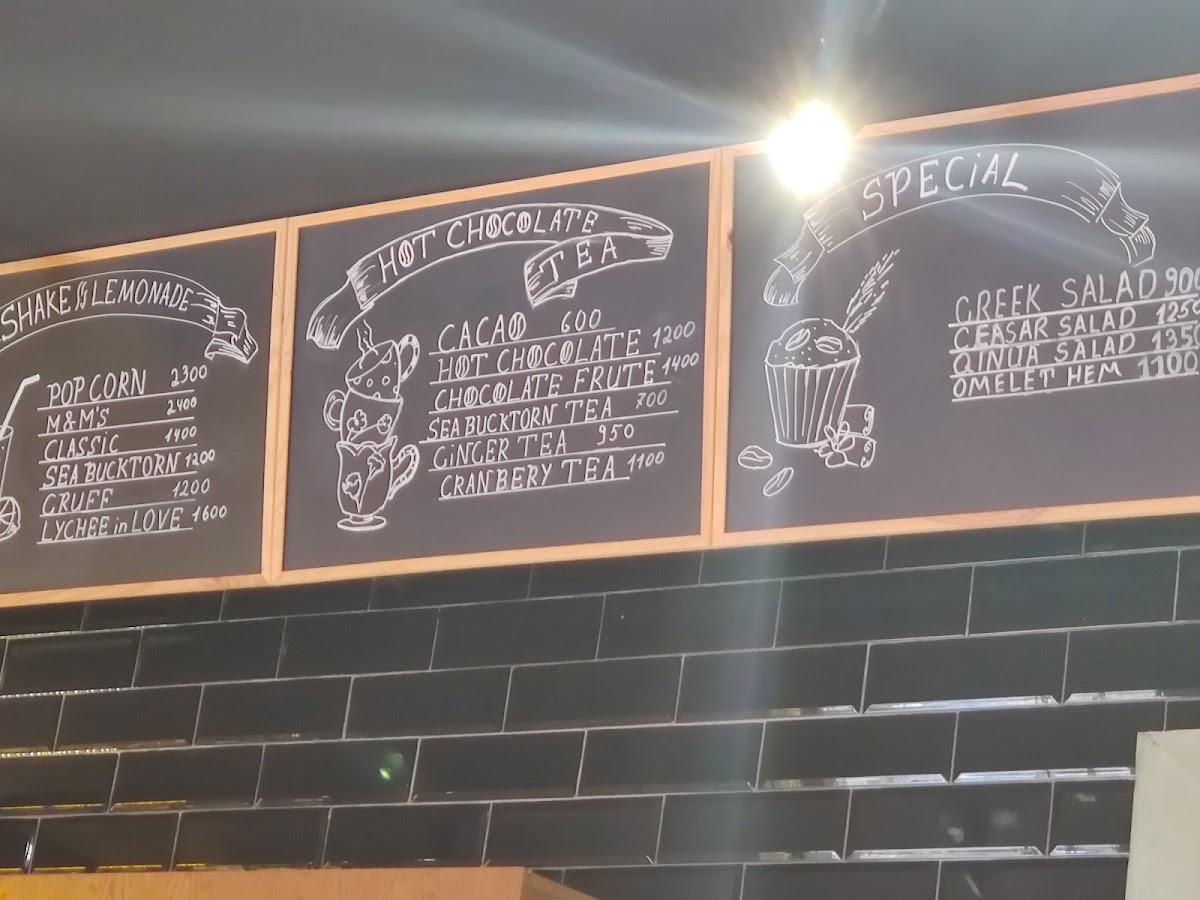 SHAKE & LEMONADE
POP CORN 2300
M&M'S 2400
CLASSIC 1400
SEA BUCKTORN 1200
GRUFF 1200
LYCHEE in LOVE 1600
HOT CHOCOLATE
TEA
CACAO 600
HOT CHOCOLATE 1200
CHOCOLATE FRUTE 1400
SEA BUCKTORN TEA 700
GiNGER TEA 950
CRANBERY TEA 1100
SPECiAL
GREEK SALAD 900
CEASAR SALAD 1250
QINUA SALAD 1350
OMELET HEM 1100